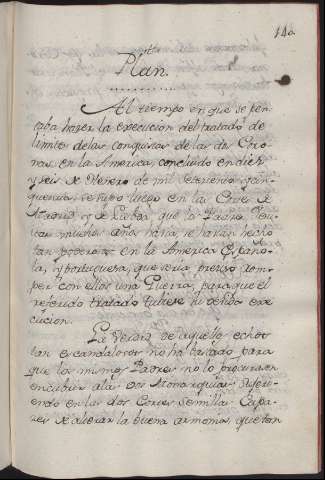 140.
Plan.
Al tiempo en que se pen
saba hacer la execucion del tratado de
limite de las conquistas de las dos Coro
nas en la America concluido en diez
y seis de Henero de mil setecientos y cin
quenta; se supo luego en las Cortes de
Madrid y de Lisboa que los Padres
muchos años havia se havian hecho
tan poderosos en la America Españo
la, y Portuguesa, que seria preciso rom
per con ellos una Guerra, para que el
referido tratado tubiese su devida exe
cucion.
La verdad de aquellos echos
tan escandalosos no ha bastado para
que los mismos Padres no lo procurasen
encubrir a las dos Monarquias
endo en las dos Cortes semillas capa
zes de alterar la buena armonia, que tan